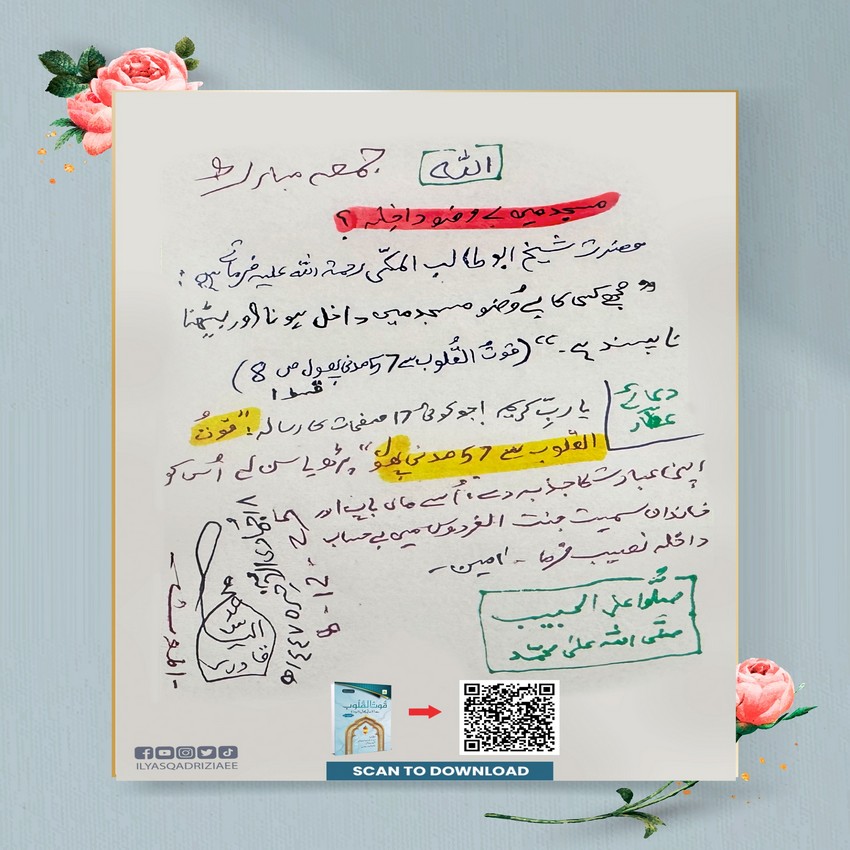 اللہ
جمعہ مبارک
مسجد میں بے وضو داخلہ ؟
حضرت شیخ ابو طالب المکّی رحمۃ اللہ علیہ فرماتے ہیں :
”مجھے کسی کا بے وُضو مسجد میں داخل ہونا اور بیٹھنا
نا پسند ہے۔“ (قوتُ القُلوب سے 57 مدنی پھول ص 8)
قسط 1
دعائے
عطّار
یا ربِّ کریم! جو کوئی 17 صفحات کا رسالہ: ”قوتُ
القلوب سے 57 مدنی پھول“ پڑھ یا سن لے اُس کو
اپنی عبادت کا جذبہ دے، اُسے ماں باپ اور
خاندان سمیت جنت الفردوس میں بے حساب
داخلہ نصیب فرما ۔ امین۔
صلُّوا علی الحبیب
صلَّی اللہ علیٰ محمَّد
قوتُ القُلوب
SCAN TO DOWNLOAD
ILYASQADRIZIAEE